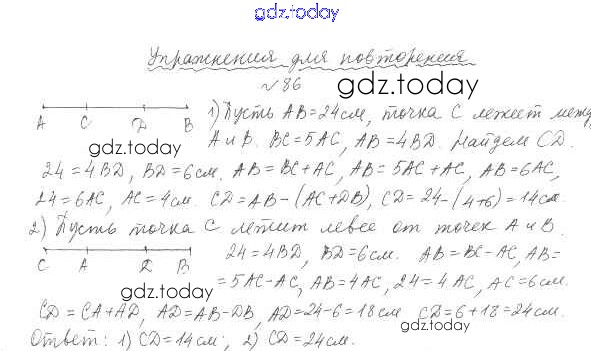 gdz.today
Упражнения для повторения
№ 86
gdz.today
A C D B
1) Пусть AB=24см, точка C лежит между
A и B. BC=5AC, AB=4BD. Найдем CD.
gdz.today
24=4BD, BD=6см. AB=BC+AC, AB=5AC+AC, AB=6AC,
24=6AC, AC=4см. CD=AB-(AC+DB), CD=24-(4+6)=14см.
2) Пусть точка C летит левее от точек A и B.
C A D B
24=4BD, BD=6см. AB=BC-AC, AB=
=5AC-AC, AB=4AC, 24=4AC, AC=6см.
gdz.today
CD=CA+AD, AD=AB-DB, AD=24-6=18см CD=6+18=24см.
gdz.today
Ответ: 1) CD=14см; 2) CD=24см.